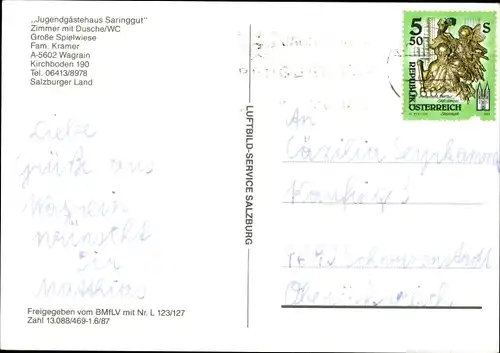 „Jugendgästehaus Saringgut"
Zimmer mit Dusche/WC
Große Spielwiese
Fam. Kramer
A-5602 Wagrain
Kirchboden 190
Tel. 06413/8978
Salzburger Land
5 50 S
REPUBLIK
ÖSTERREICH
LUFTBILD-SERVICE SALZBURG
An
Cäzilia
Schwanenstadt
Oberösterreich
Liebe
Grüße aus
Wagrain
wünscht
Dir
Matthias
Freigegeben vom BMfLV mit Nr. L 123/127
Zahl 13.088/469-1.6/87